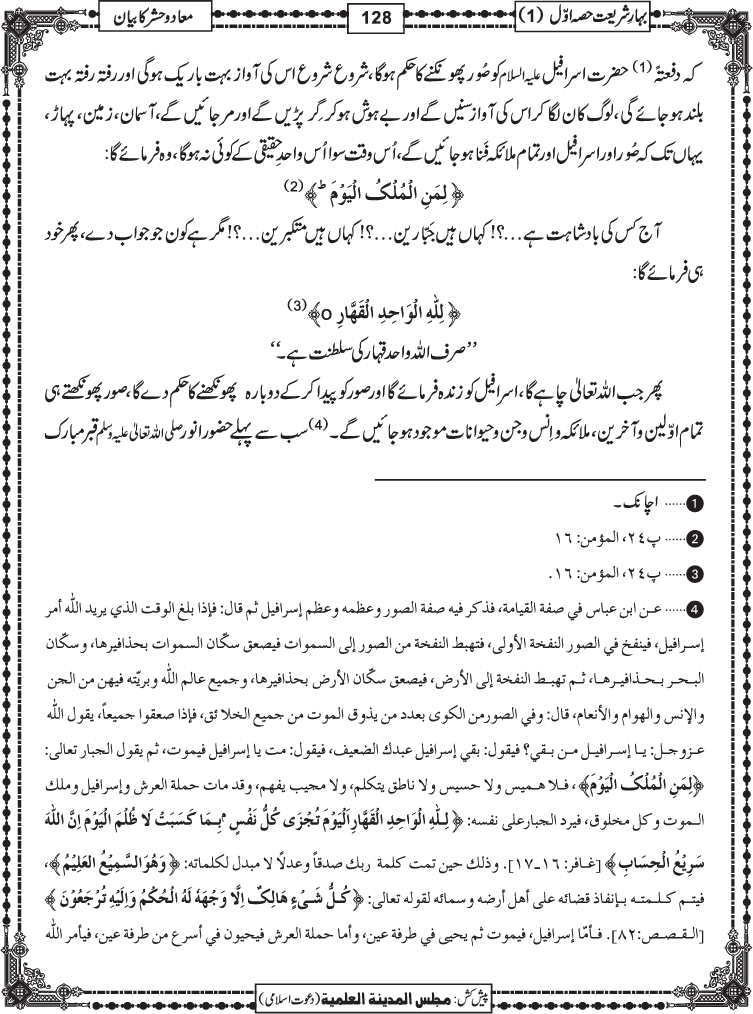 بہارِ شریعت حصہ اوّل (1)
128
معاد و حشر کا بیان
کہ دفعتہً (1) حضرت اسرافیل علیہ السلام کو صُور پھونکنے کا حکم ہوگا، شروع شروع اس کی آواز بہت باریک ہوگی اور رفتہ رفتہ بہت
بلند ہو جائے گی، لوگ کان لگا کر اس کی آواز سنیں گے اور بے ہوش ہو کر گر پڑیں گے اور مر جائیں گے، آسمان، زمین، پہاڑ،
یہاں تک کہ صُور اور اسرافیل اور تمام ملائکہ فَنا ہو جائیں گے، اُس وقت سوا اُس واحدِ حقیقی کے کوئی نہ ہوگا، وہ فرمائے گا:
﴿ لِمَنِ الْمُلْكُ الْیَوْمَ ؕ ﴾ (2)
آج کس کی بادشاہت ہے...؟! کہاں ہیں جَبّارین...؟! کہاں ہیں متکبرین...؟! مگر ہے کون جو جواب دے، پھر خود
ہی فرمائے گا:
﴿ لِلّٰهِ الْوَاحِدِ الْقَهَّارِ o ﴾ (3)
’’صرف اللہ واحد قہار کی سلطنت ہے۔‘‘
پھر جب اللہ تعالیٰ چاہے گا، اسرافیل کو زندہ فرمائے گا اور صور کو پیدا کر کے دوبارہ پھونکنے کا حکم دے گا، صور پھونکتے ہی
تمام اوّلین و آخرین، ملائکہ و اِنس و جن و حیوانات موجود ہو جائیں گے۔ (4) سب سے پہلے حضور انور صلی اللہ تعالیٰ علیہ وسلم قبر مبارک
1 ...... اچانک۔
2 ...... پ٢٤، المؤمن: ١٦
3 ...... پ٢٤، المؤمن: ١٦.
4 ...... عـن ابن عباس في صفة القيامة، فذكر فيه صفة الصور وعظمه وعظم إسرافيل ثم قال: فإذا بلغ الوقت الذي يريد اللّٰه أمر
إسرافيل، فينفخ في الصور النفخة الأولى، فتهبط النفخة من الصور إلى السموات فيصعق سكّان السموات بحذافيرها، وسكّان
البحر بحذافيرها، ثم تهبط النفخة إلى الأرض، فيصعق سكّان الأرض بحذافيرها، وجميع عالم اللّٰه وبريّته فيهن من الجن
والإنس والهوام والأنعام، قال: وفي الصور من الكوى بعدد من يذوق الموت من جميع الخلائق، فإذا صعقوا جميعاً، يقول اللّٰه
عزوجل: يا إسرافيل من بقي؟ فيقول: بقي إسرافيل عبدك الضعيف، فيقول: مت يا إسرافيل فيموت، ثم يقول الجبار تعالى:
﴿لِمَنِ الْمُلْكُ الْیَوْمَ﴾، فلا هميس ولا حسيس ولا ناطق يتكلم، ولا مجيب يفهم، وقد مات حملة العرش وإسرافيل وملك
الموت وكل مخلوق، فيرد الجبار على نفسه: ﴿ لِلّٰهِ الْوَاحِدِ الْقَهَّارِ اَلْیَوْمَ تُجْزٰى كُلُّ نَفْسٍ ۭبِمَا كَسَبَتْ لَا ظُلْمَ الْیَوْمَ اِنَّ اللّٰهَ
سَرِیْعُ الْحِسَابِ ﴾ [غافر: ١٦ـ١٧]. وذلك حين تمت كلمة ربك صدقاً وعدلاً لا مبدل لكلماته: ﴿ وَهُوَ السَّمِیْعُ الْعَلِیْمُ ﴾،
فيتم كلمته بإنفاذ قضائه على أهل أرضه وسمائه لقوله تعالى: ﴿ كُلُّ شَیْءٍ هَالِكٌ اِلَّا وَجْهَهٗ لَهُ الْحُكْمُ وَاِلَیْهِ تُرْجَعُوْنَ ﴾
[القصص:٨٢]. فأمّا إسرافيل، فيموت ثم يحيى في طرفة عين، وأما حملة العرش فيحيون في أسرع من طرفة عين، فيأمر اللّٰه
پیش کش: مجلس المدينة العلمية (دعوت اسلامی)